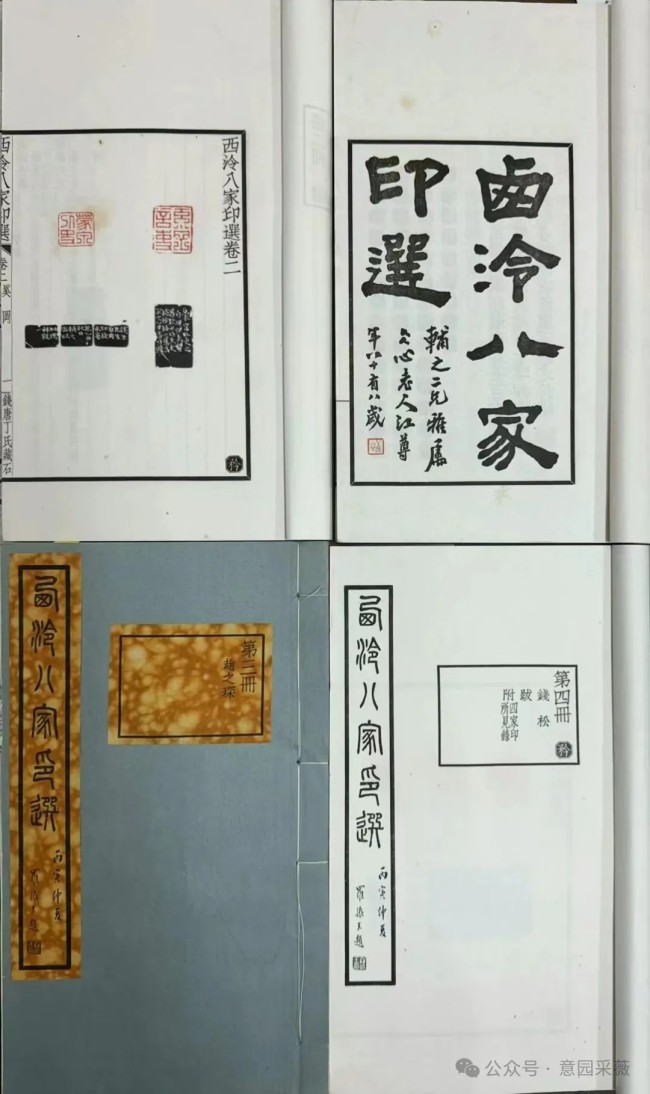 西泠八家印選卷二
蒙泉外史
西泠八家印選
卷二 奚岡
一
錢唐丁氏藏石
西泠八家
印選
輔之二兄雅屬
心老人江尊
年八十有八歲
西泠八家印選
丙寅仲夏
羅振玉題
第三冊
趙之琛
西泠八家印選
丙寅仲夏
羅振玉題
第四冊
錢松
跋
附四家印
所見錄
公众号·意园采薇